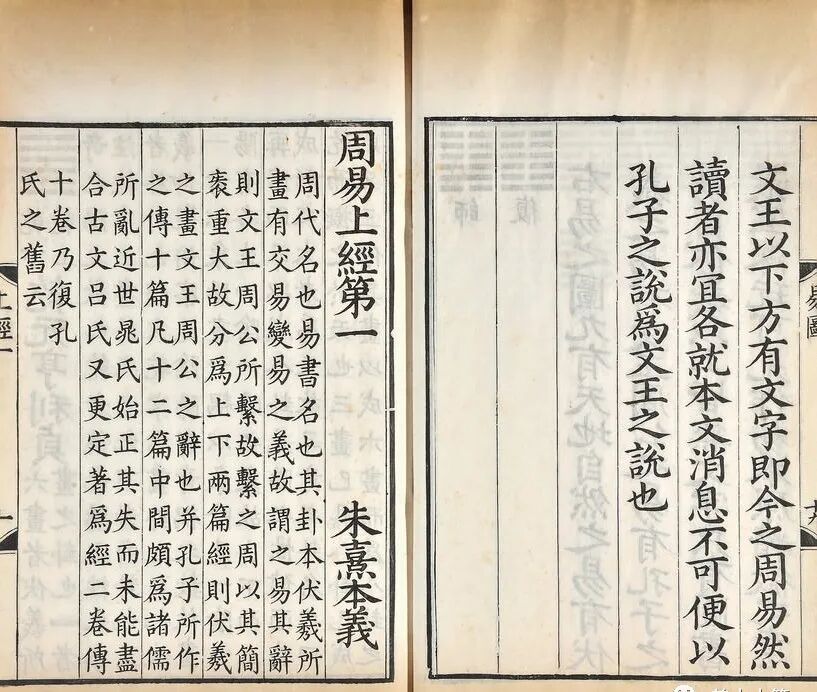 文王以下方有文字即今之周易然
讀者亦宜各就本文消息不可便以
孔子之說爲文王之說也
周易上經第一
朱熹本義
周代名也易書名也其卦本伏羲所
畫有交易變易之義故謂之易其辭
則文王周公所繫故繫之周以其簡
袠重大故分爲上下兩篇經則伏羲
之畫文王周公之辭也并孔子所作
之傳十篇凡十二篇中間頗爲諸儒
所亂近世晁氏始正其失而未能盡
合古文呂氏又更定著爲經二卷傳
十卷乃復孔
氏之舊云
上經一